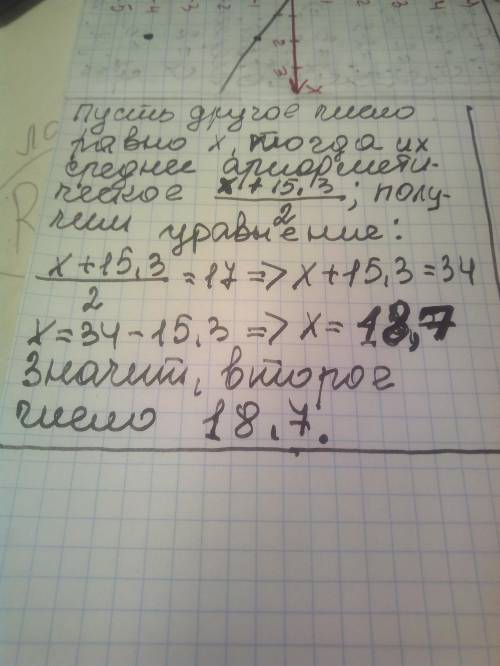 -5
-4
-3
-2
1
2
3
X
Пусть другое число
равно x, тогда их
среднее арифмети-
ческое x+15,3/2; полу-
чим уравнение:
x+15,3/2 =17 => x+15,3=34
x=34-15,3 => x= 18,7
Значит, второе
число 18,7.